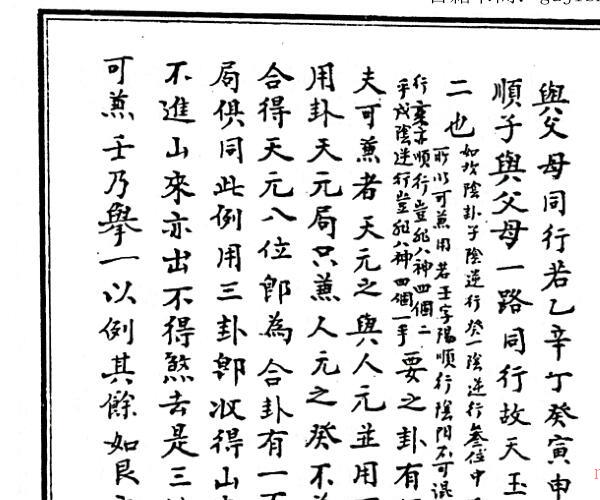 與父母同行若乙辛丁癸寅申
順子與父母一路同行故天玉
二也如坎陰卦子陰逆行癸一陰逆行叄位中
所以可蒹用若壬字陽順行陰陽不可混
行要亦順行豈非八神四個二
乎戌陰逆行豈非八神四個一乎要之卦有
夫可蒹者天元之與人元並用
用卦天元局只蒹人元之癸不
合得天元八位卽為合卦有一
局俱同此例用三卦卽收得山
不進山來亦出不得煞去是三
可蒹壬乃擧一以例其餘如艮